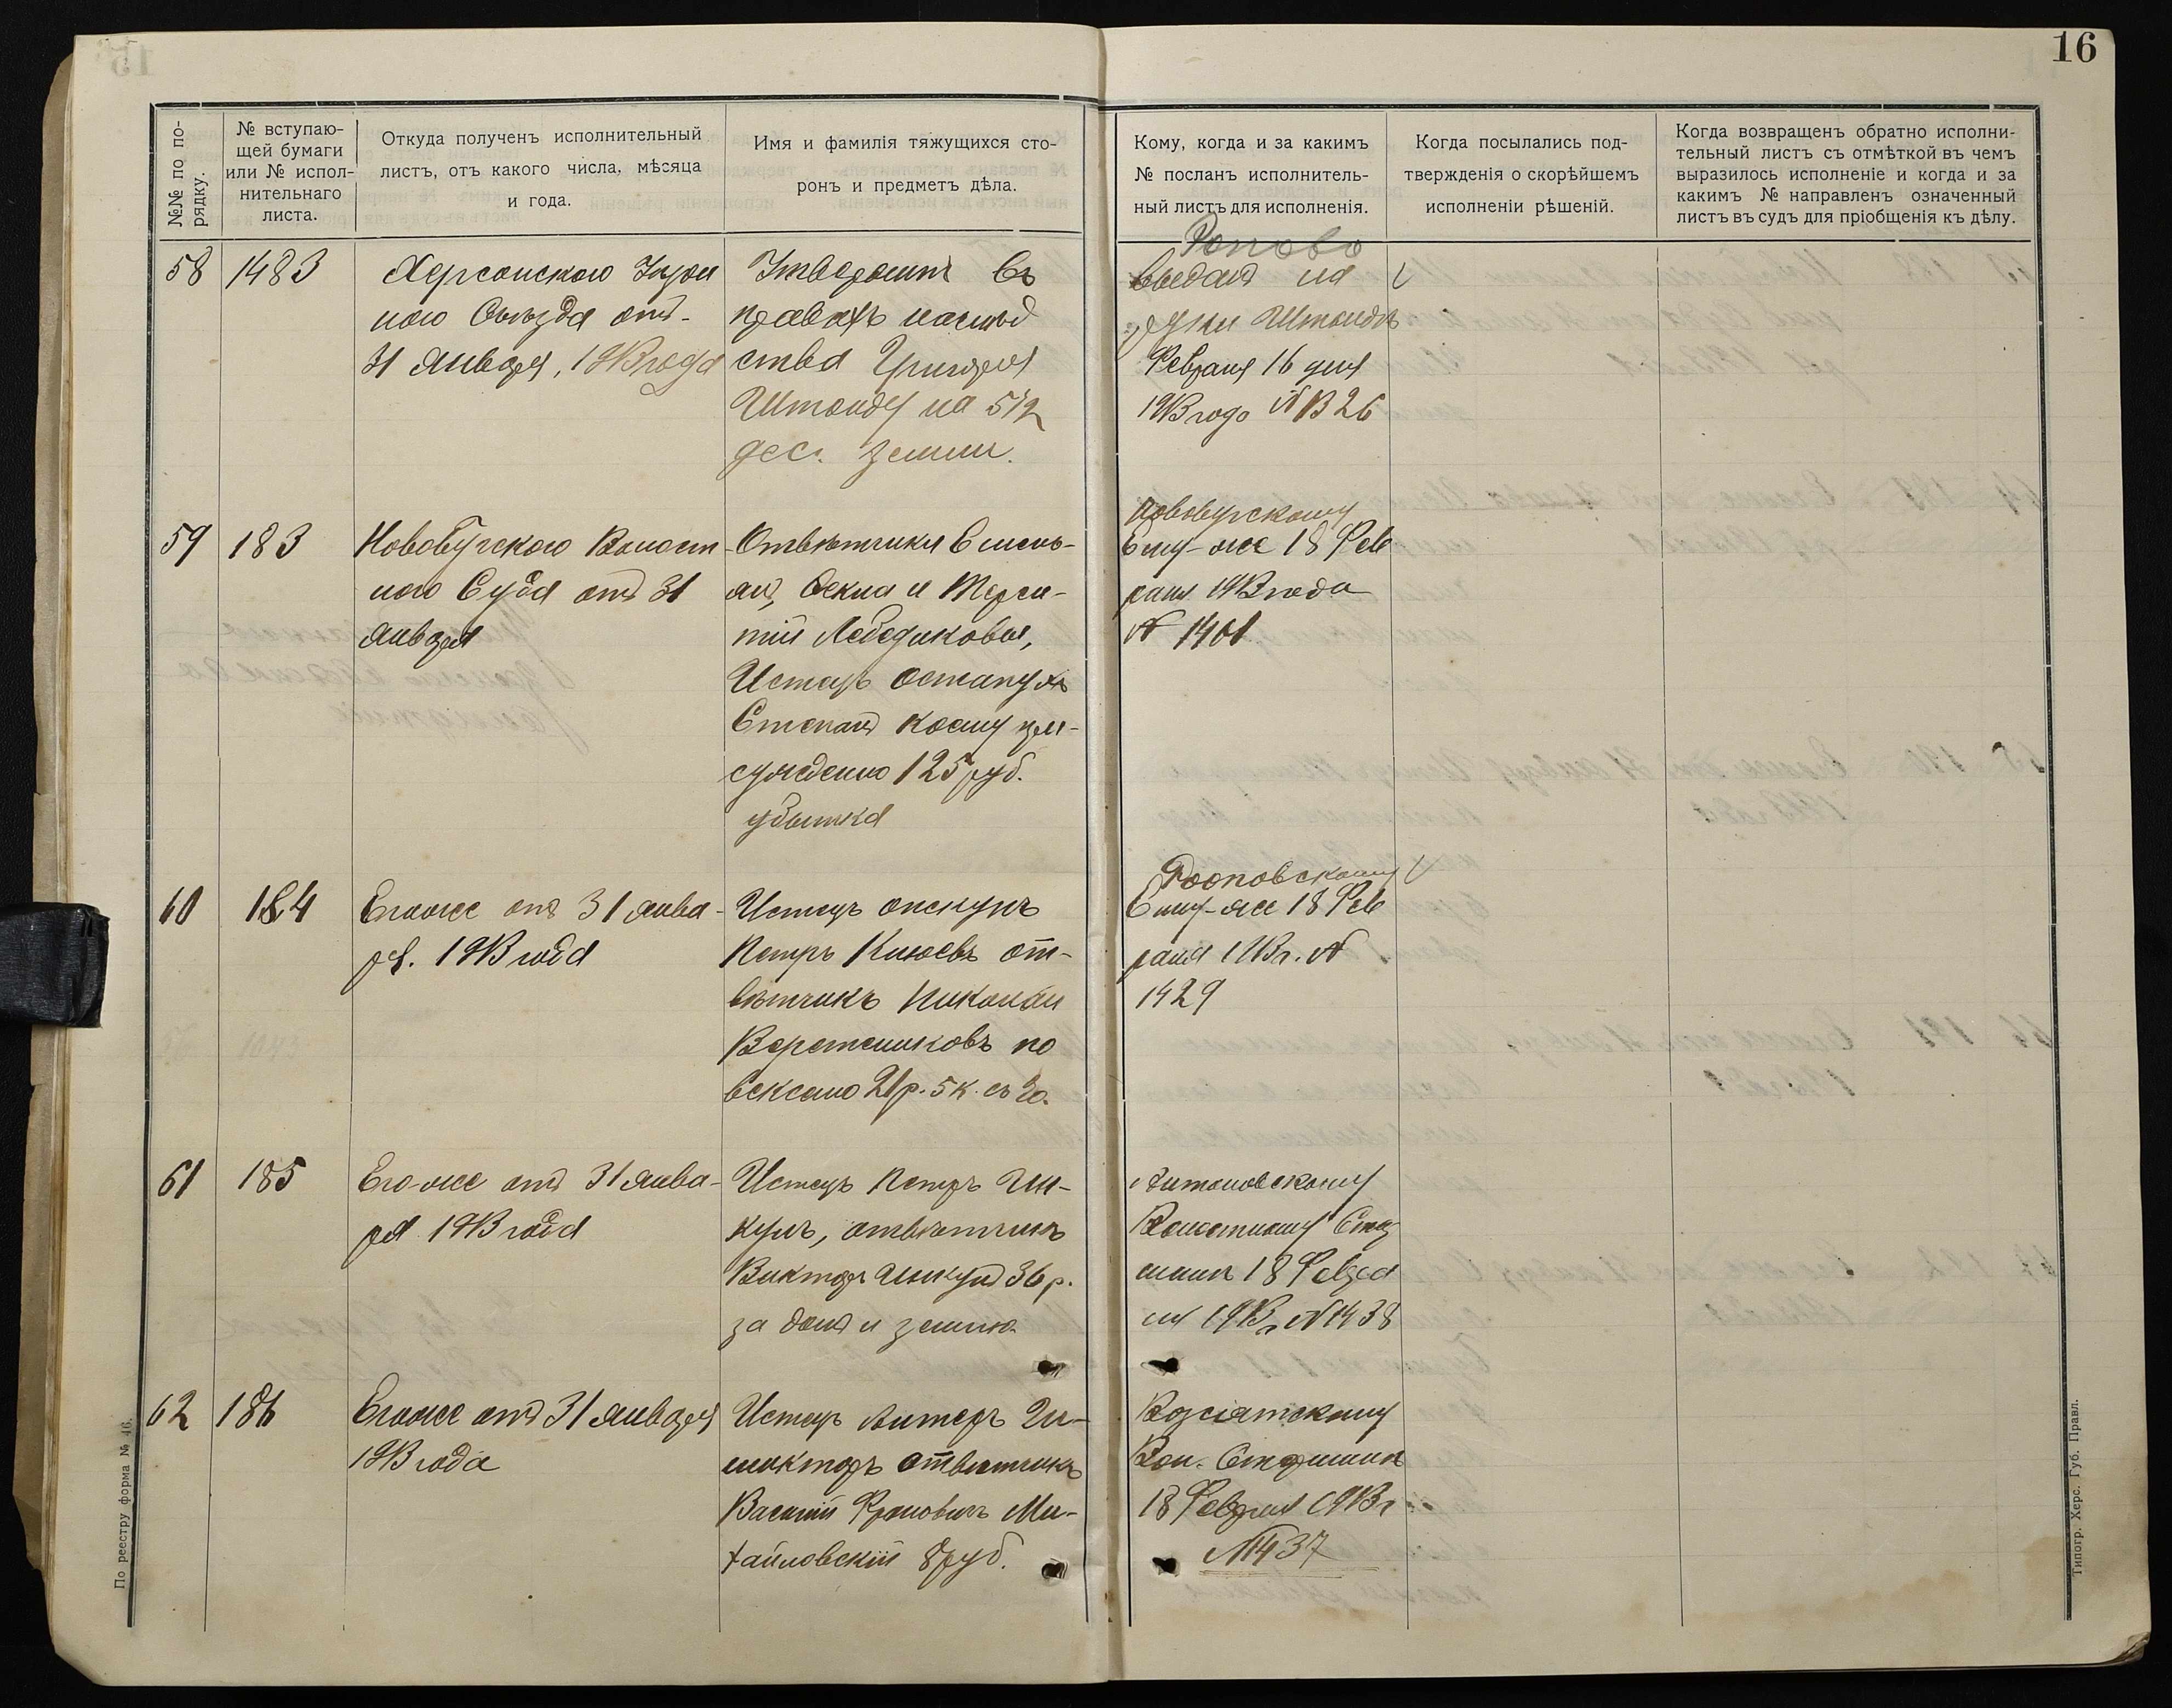 16
№№ по по-
рядку.
№ вступаю-
щей бумаги
или № испол-
нительнаго
листа.
Откуда полученъ исполнительный
листъ, отъ какого числа, мѣсяца
и года.
Имя и фамилія тяжущихся сто-
ронъ и предметъ дѣла.
Кому, когда и за какимъ
№ посланъ исполнитель-
ный листъ для исполненія.
Когда посылались под-
твержденія о скорѣйшемъ
исполненіи рѣшеній.
Когда возвращенъ обратно исполни-
тельный листъ съ отмѣткой въ чемъ
выразилось исполненіе и когда и за
какимъ № направленъ означенный
листъ въ судъ для пріобщенія къ дѣлу.
58
1483
Херсонскаго Уѣзд
наго Съѣзда отъ
31 Января, 1913 года
Утвердить въ
правахъ наслѣд
ства Григорія
Штонду на 5 1/2
дес. земли.
Попово
Выданъ на
руки Штондѣ
Февраля 16 дня
1913 года № 1326
59
183
Новобугскаго Волост
наго Суда отъ 31
Января
Отвѣтчики Емель-
ян, Фекла и Терен-
тій Лебедиковы,
Истецъ Остапухъ
Степанъ коему при-
суждено 125 руб.
убытка
Новобугскому
Ему-же 18 Фев
раля 1913 года
№ 1401
60
184
Егоже отъ 31 Янва-
ря. 1913 года
Истецъ опекунъ
Петръ Клюевъ от-
вѣтчикъ Николай
Веретениковъ по
векселю 21 р. 5 к. съ %.
Роопово­скому
Ему-же 18 Фев
раля 1913 г. №
1429
61
185
Его-же отъ 31 Янва-
ря 1913 года
Истецъ Петръ Цы-
кулъ, отвѣтчикъ
Викторъ Цыкулъ 36 р.
за домъ и землю
Антоновскому
Волостному Стар
шинѣ 18 Февра
ля 1913 г № 1438
62
186
Егоже отъ 31 Января
1913 года
Истецъ
отвѣтчикъ
Василій Ми-
хайловскій 8 руб.
Возсіятскому
Вол. Старшинѣ
18 Февраля 1913 г
№ 1437
По реестру форма № 46.
Типогр. Херс. Губ. Правл.